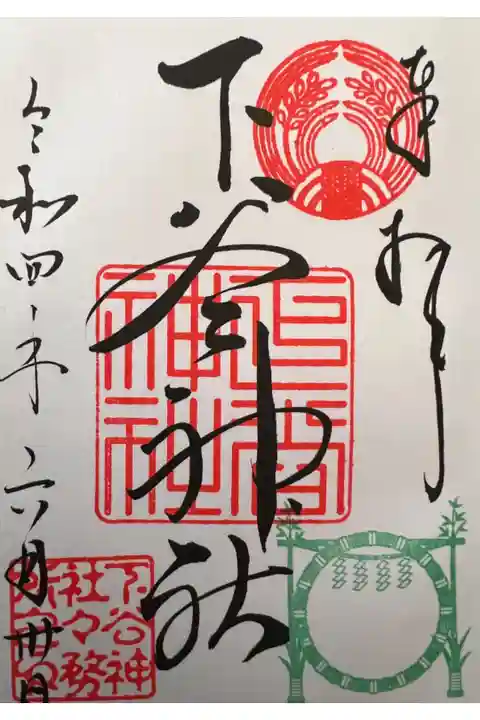 奉拝
下谷神社
下谷神社
令和四年六月卅日
下谷神社々務所之印